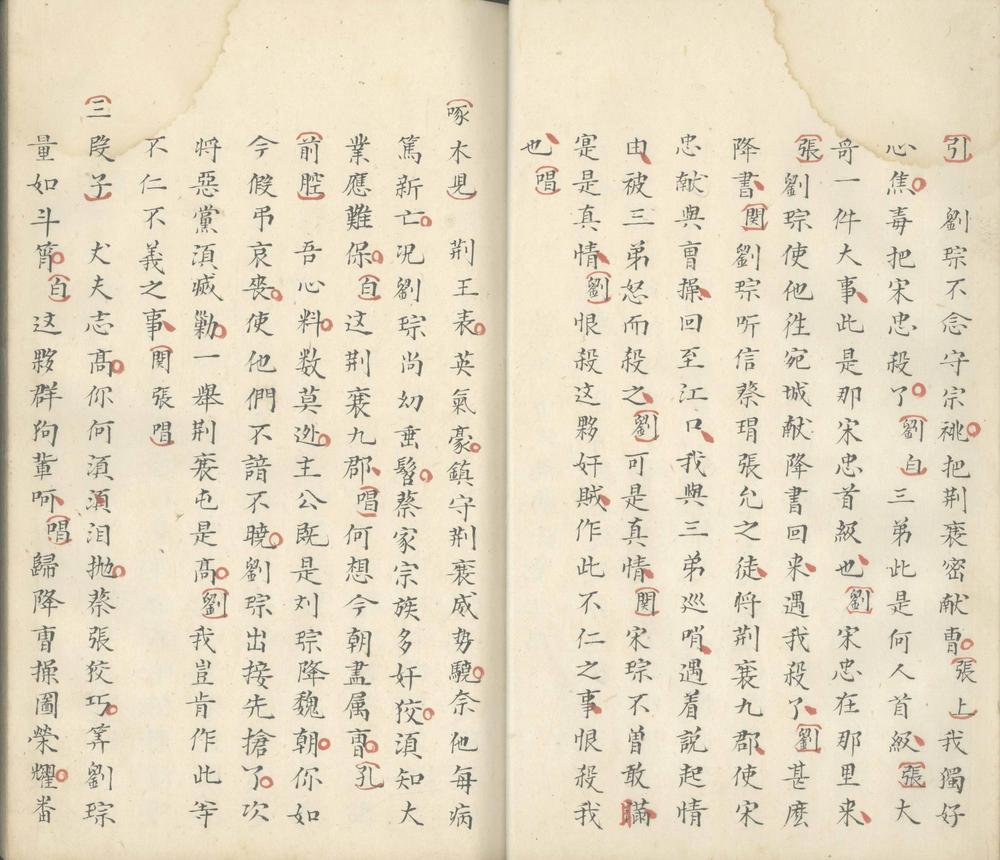 引 劉琮不念守宗祧把荆襄密献曹張上我獨好
心焦毒把宋忠殺了劉白三弟此是何人首級張大
哥一件大事此是那宋忠首級也劉宋忠在那里来
張劉琮使他徃宛城献降書回来遇我殺了劉甚麽
降書関劉琮听信蔡瑁張允之徒将荆襄九郡使宋
忠献與曹操回至江口我與三弟巡哨遇着説起情
由被三弟怒而殺之劉可是真情関宋琮不曾敢瞞
寔是真情劉恨殺这夥奸賊作此不仁之事恨殺我
也唱
啄木児 荆王表英氣豪鎮守荆襄威势驍奈他每病
篤新亡况劉琮尚幼垂髫蔡家宗族多奸狡湏知大
業應難保白这荆襄九郡唱何想今朝盡属曹孔
前腔 吾心料数莫迯主公既是刘琮降魏朝你如
今假弔哀喪使他們不諳不曉劉琮出接先擒了次
将惡黨湏㓕勦一舉荆襄屯是髙劉我豈肯作此等
不仁不義之事関張唱
三叚子 丈夫志髙你何湏湏泪抛蔡張狡巧筭劉琮
量如斗筲白这夥群狗輩呵唱歸降曹操圖榮耀畨